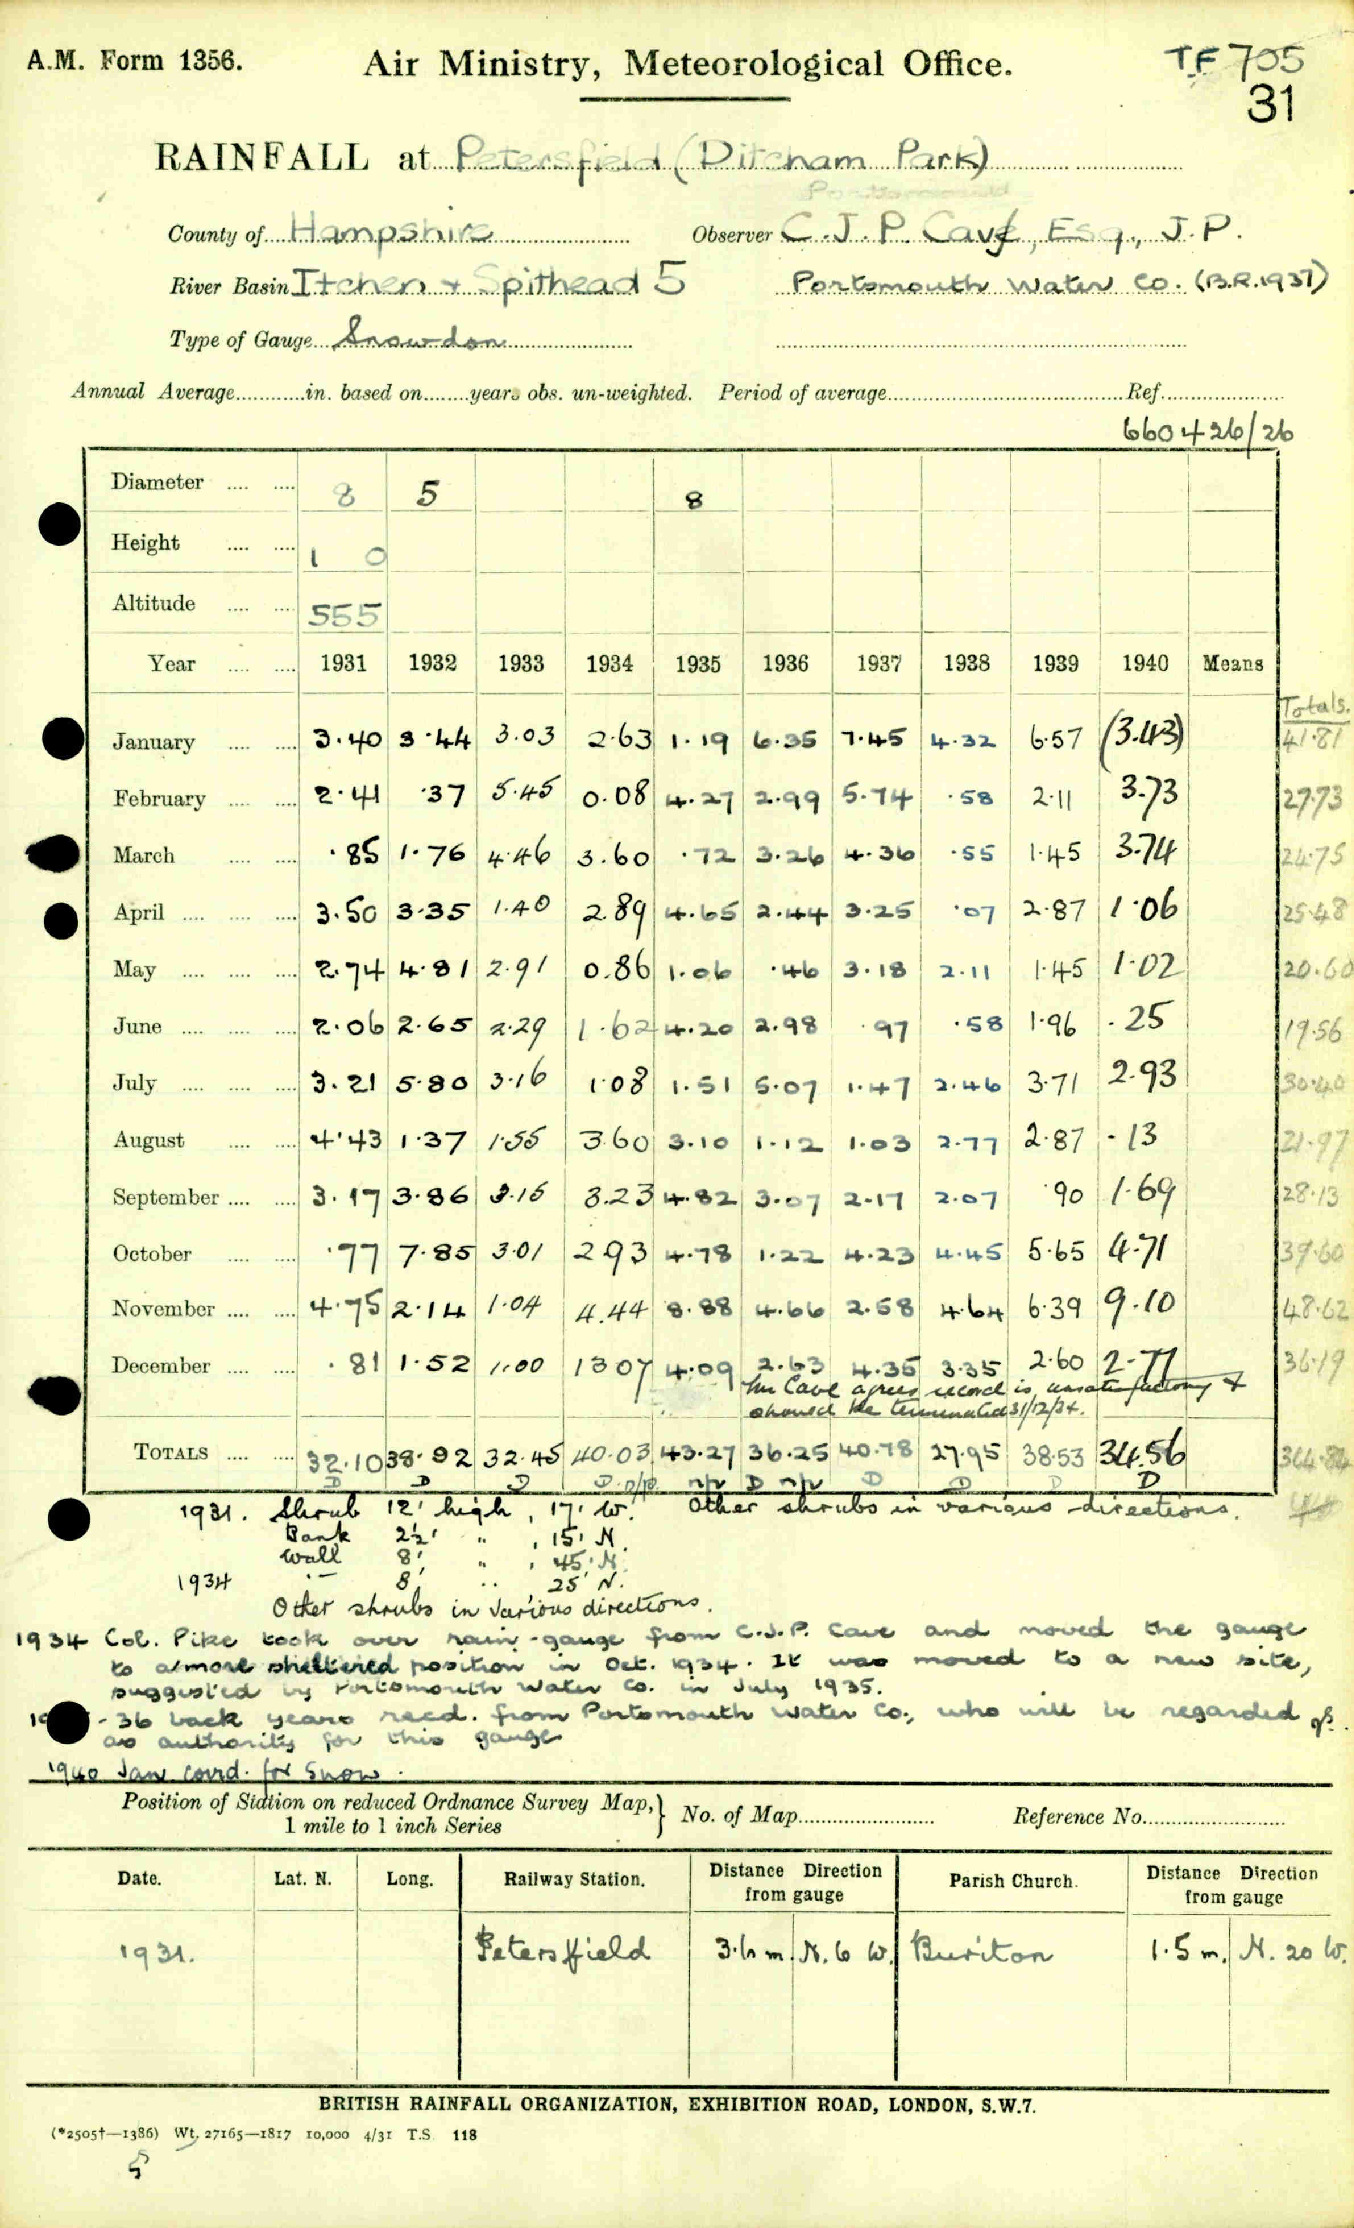 A.M. Form 1356.
Air Ministry, Meteorological Office.
TF 705
31
RAINFALL at Petersfield (Ditcham Park)
County of Hampshire Observer C.J.P. Cave, Esq., J.P.
River Basin Itchen + Spithead 5 Portsmouth Water Co. (B.R. 1937)
Type of Gauge Snowdon
Annual Average............in. based on........years obs. un-weighted. Period of average.................... Ref....................
660426/26
Diameter .... .... 8 5 8
Height .... .... 1 0
Altitude .... .... 555
Year .... .... 1931 1932 1933 1934 1935 1936 1937 1938 1939 1940 Means
Totals.
January .... .... 3.40 3.44 3.03 2.63 1.19 6.35 7.45 4.32 6.57 (3.43) 41.81
February .... .... 2.41 .37 5.45 0.08 4.27 2.99 5.74 .58 2.11 3.73 27.73
March .... .... .85 1.76 4.46 3.60 .72 3.26 4.36 .55 1.45 3.74 24.75
April .... .... .... 3.50 3.35 1.40 2.89 4.65 2.44 3.25 .07 2.87 1.06 25.48
May .... .... .... 2.74 4.81 2.91 0.86 1.06 .46 3.18 2.11 1.45 1.02 20.60
June .... .... .... 2.06 2.65 2.29 1.62 4.20 2.98 .97 .58 1.96 .25 19.56
July .... .... .... 3.21 5.80 3.16 1.08 1.51 5.07 1.47 2.46 3.71 2.93 30.40
August .... .... 4.43 1.37 1.55 3.60 3.10 1.12 1.03 2.77 2.87 .13 21.97
September .... .... 3.17 3.86 3.15 3.23 4.82 3.07 2.17 2.07 .90 1.69 28.13
October .... .... .77 7.85 3.01 2.93 4.78 1.22 4.23 4.45 5.65 4.71 39.60
November .... .... 4.75 2.14 1.04 4.44 8.88 4.66 2.58 4.64 6.39 9.10 48.62
December .... .... .81 1.52 1.00 13 07 4.09 2.63 4.35 3.35 2.60 2.77 36.19
Mr Cave agrees record is unsatisfactory &
should be terminated 31/12/34.
TOTALS .... .... 32.10 38.92 32.45 40.03 43.27 36.25 40.78 27.95 38.53 34.56 364.84
D D D D D D D D D
1931. Shrub 12' high, 17' W. Other shrubs in various directions.
Bank 2½' " , 15' N.
Wall 8' " , 45' N.
1934 — 8' .. 25' N.
Other shrubs in various directions.
1934 Col. Pike took over rain-gauge from C.J.P. Cave and moved the gauge
to a more sheltered position in Oct. 1934. It was moved to a new site,
suggested by Portsmouth Water Co. in July 1935.
- 36 back years recd. from Portsmouth Water Co., who will be regarded
as authority for this gauge
1940 Jan corrd. for Snow.
Position of Station on reduced Ordnance Survey Map,} No. of Map........................ Reference No.........................
1 mile to 1 inch Series
Date. Lat. N. Long. Railway Station. Distance Direction from gauge Parish Church. Distance Direction from gauge
1931. Petersfield 3.6 m. N. 6 W. Buriton 1.5 m. N. 20 W.
BRITISH RAINFALL ORGANIZATION, EXHIBITION ROAD, LONDON, S.W.7.
(*2505†—1386) Wt. 27165—1817 10,000 4/31 T.S. 118
5